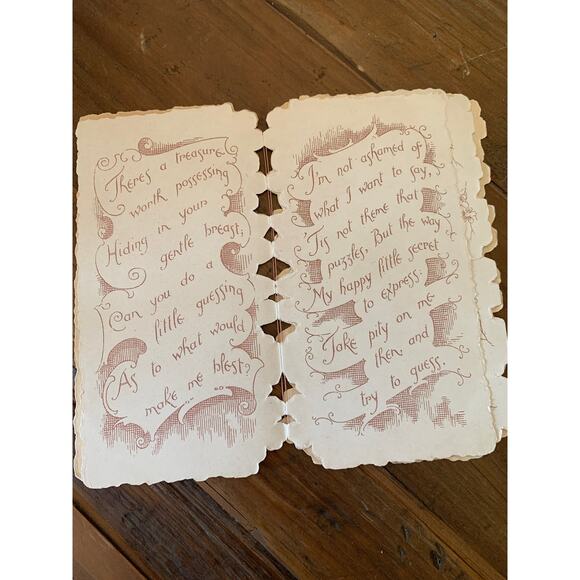 There's a treasure
worth possessing
Hiding in your
gentle breast;
Can you do a
little guessing
As to what would
make me blest?
I'm not ashamed of
what I want to say,
'Tis not theme that
puzzles. But the way
My happy little secret
to express;
Take pity on me
then, and
try to guess.